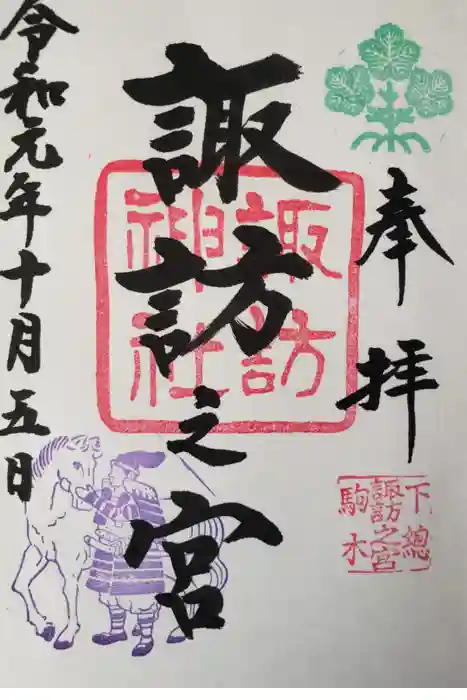 奉拝
下總
諏訪之宮
駒木
諏訪之宮
諏訪
神社
令和元年十月五日